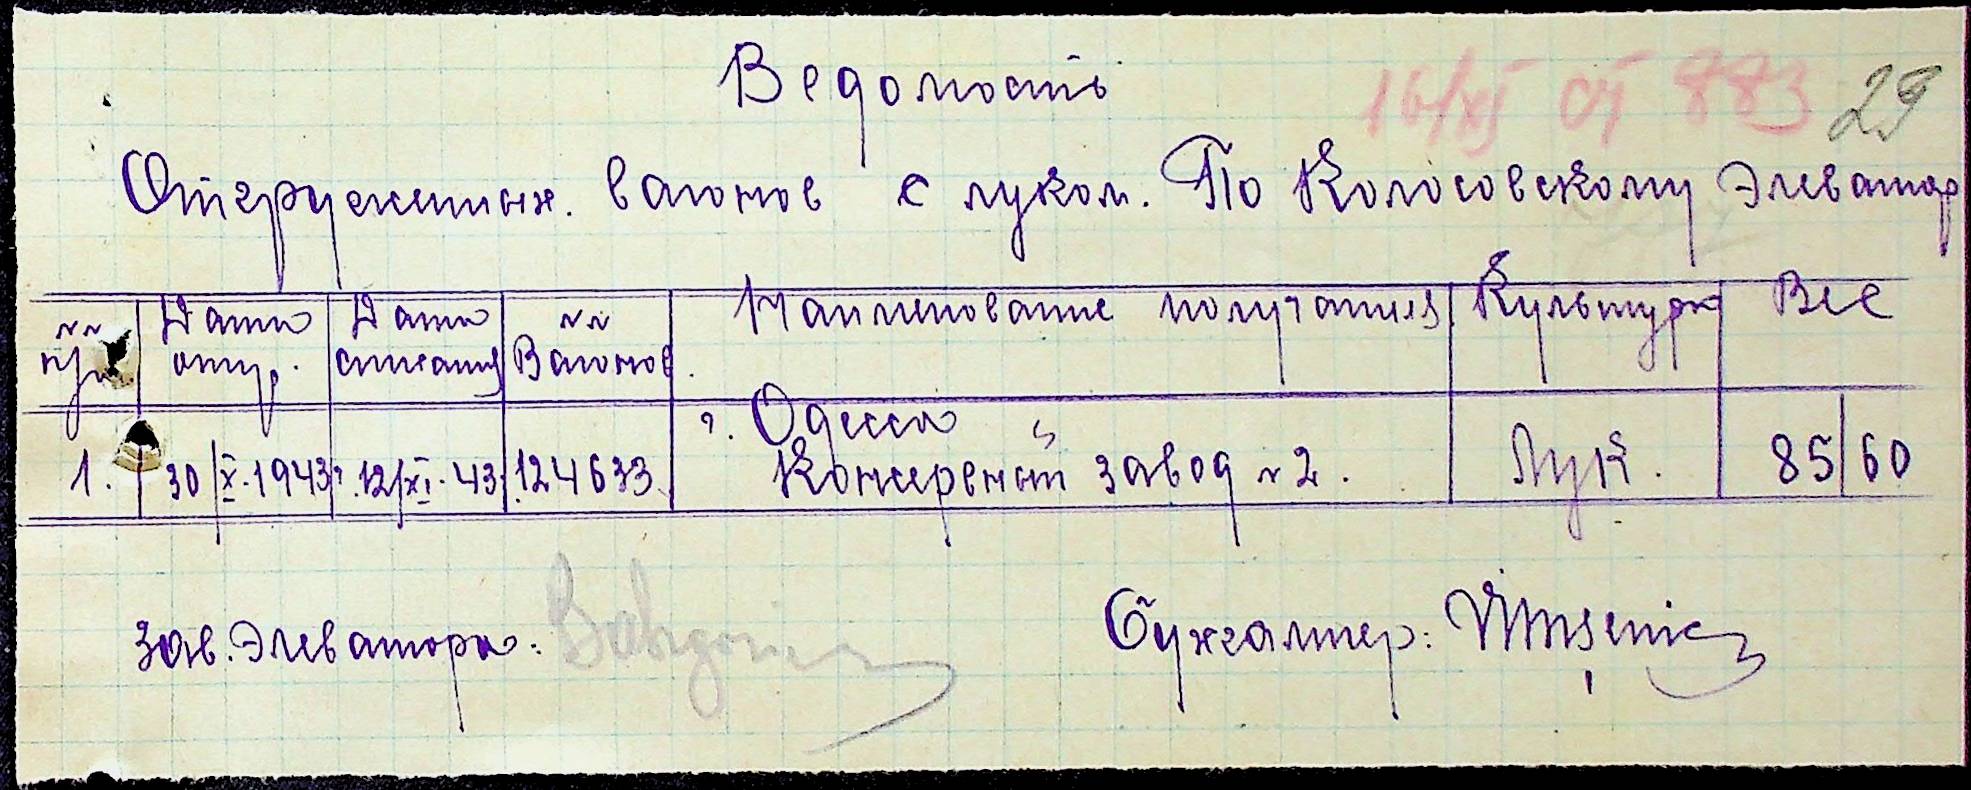 Ведомость
16/XI 883 29
Отгруженных. вагонов с луком. По Колосовскому Элеватор
№№ п/п Дата отгр. Дата списания №№ Вагонов. Наименование получателя Культура Вес
1. 30/X-1943г. 12/XI-43 124633. г. Одесса
Консервный завод №2. Лук. 85/60
Зав. Элеватора:
Бухгалтер: